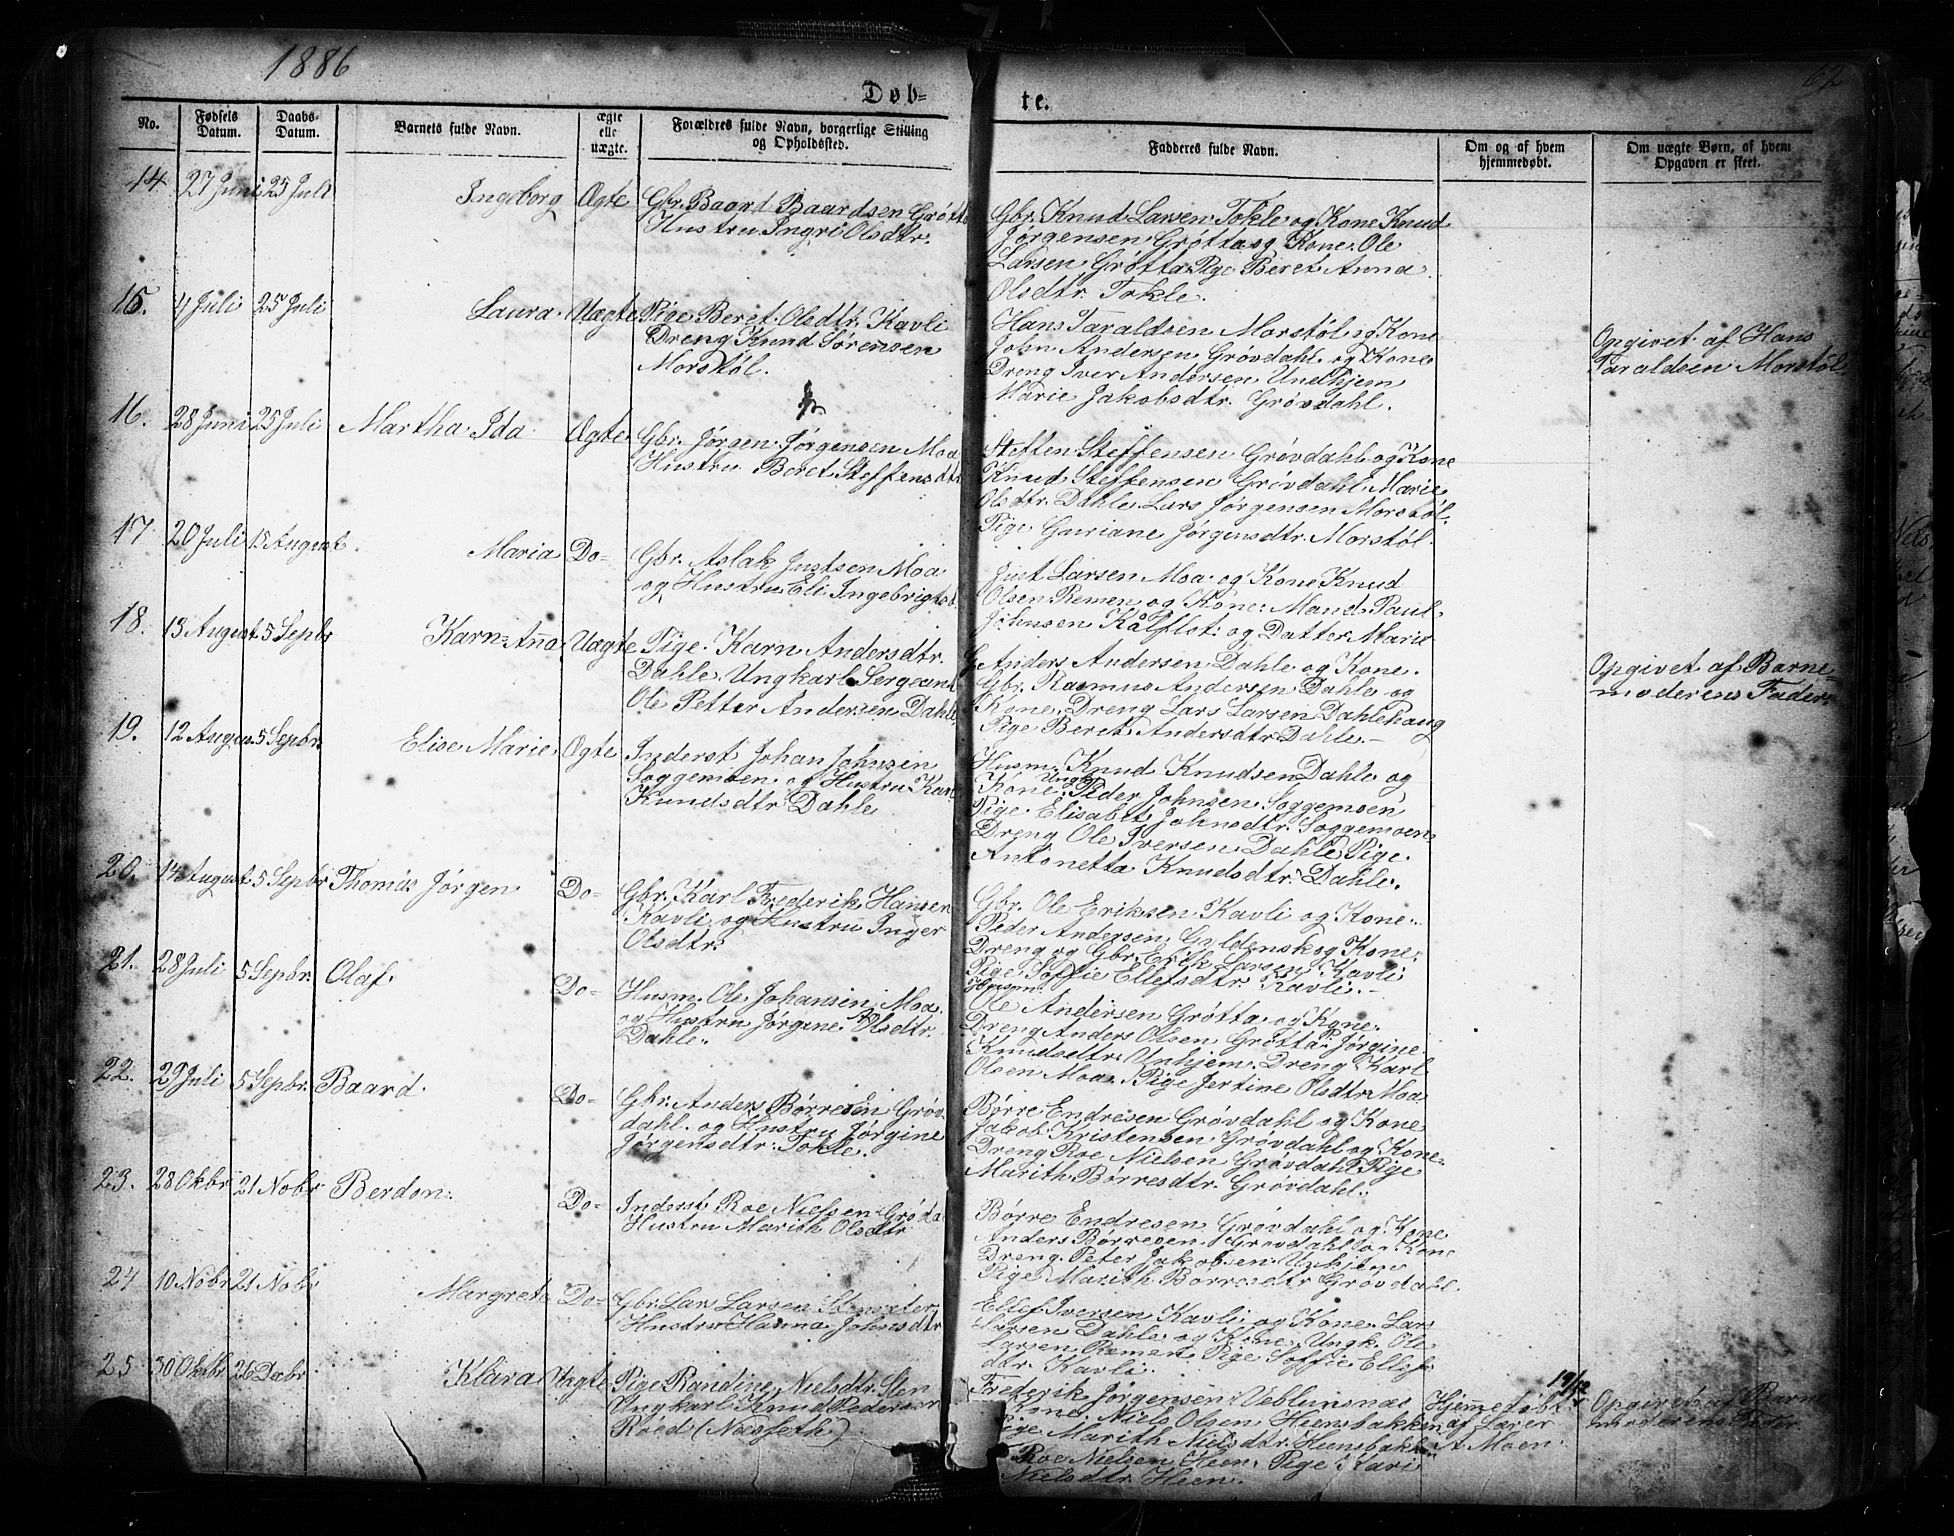 1886
62
Døb-
te.
No.
Fødsels Datum.
Daabs-Datum.
Barnets fulde Navn.
ægte elle uægte.
Forældres fulde Navn, borgerlige Stilling og Opholdssted.
Fadderes fulde Navn.
Om og af hvem hjemmedøbt.
Om uægte Børn, af hvem Opgaven er skeet.
14. 27 Juni 25 Juli Ingeborg Ægte Gbr. Baard Baardsen Grøtta
Hustru Ingri Olsdtr.
Gbr. Knud Larsen Tokle og Kone Knud
Jørgensen Grøtta og Kone. Ole
Larsen Grøtta Pige Beret Anna
Olsdtr. Tokle.
15. 4 Juli 25 Juli Laura. Uægte Pige Beret Olsdtr. Kavli
Dreng Knud Sørensen
Morstøl.
Hans Taraldsen Morstøl og Kone
John Andersen Grøvdahl og Kone
Dreng Iver Andersen Undhjem
Marie Jakobsdtr. Grøvdahl.
Opgivet af Hans
Taraldsen Morstøl
16. 28 Juni 25 Juli Martha Ida Ægte Gbr. Jørgen Jørgensen Moa
Hustru Beret Steffensdtr
Steffen Steffensen Grøvdahl og Kone
Knud Steffensen Grøvdahl Marie
Olsdtr. Dahle Lars Jørgensen Morstøl.
Pige Guriane Jørgensdtr. Morstøl.
17. 20 Juli 15 August Maria Do= Gbr. Aslak Justsen Moa
og Hustru Eli Ingebrigtsd.
Just Larsen Moa og Kone Knud
Olsen Remen og Kone. Mand Paul
Johnsen Kålflot og Datter Marit
18. 13 August 5 Sepbr Karn=Ana Uægte Pige Karn Andersdtr.
Dahle Ungkarl Sergeant
Ole Petter Andersen Dahle
G. Anders Andersen Dahle og Kone.
Gbr. Rasmus Andersen Dahle og
Kone. Dreng Lars Larsen Dahlehaug
Pige Beret Andersdtr Dahle.-
Opgivet af Barne-
moderens Fader.
19. 12 Augus. 5 Sepbr. Elise Marie Ægte Inderst Johan Johnsen
Soggemoen og Hustru Kari
Knudsdtr Dahle
Husm. Knud Knudsen Dahle og
Kone. Ungk. Peder Johnsen Soggemoen
Pige Elisabet Johnsdtr. Soggemoen
Dreng Ole Iversen Dahle Pige
Antonetta Knudsdtr. Dahle.
20. 14 August 5 Sepbr Thomas Jørgen Do= Gbr. Karl Frederik Hansen
Kavli og Hustru Inger
Olsdtr.
Gbr. Ole Eriksen Kavli og Kone.
Peder Andersen Gyldenskog Kone.
Dreng og Gbr. Erik Larsen Kavli
Pige Soffie Ellefsdtr. Kavli.-
21. 28 Juli 5 Sepbr. Olaf. Do= Husm. Ole Johansen Moa
og Hustru Jørgine Olsdtr.
Dahle.
Husm.
Ole Andersen Grøtta og Kone.
Dreng Anders Olsen Grøtta P. Jørgine
Knudsdtr. Unhjem. Dreng Karl
Olsen Moa. Pige Jertine Olsdtr Moa
22. 29 Juli 5 Sepbr. Baard. Do= Gbr. Anders Børresen Grøv-
dahl. og Hustru Jørgine
Jørgensdtr. Tokle.
Børre Endresen Grøvdahl og Kone
Jakob Kristensen Grøvdahl og Kone.
Dreng Roe Nielsen Grøvdahl Pige
Marith Børresdtr. Grøvdahl.
23. 28 Okbr 21 Nobr Berdon. Do= Inderst Roe Nielsen Grøvda
Hustru Marith Olsdtr
Børre Endresen Grøvdahl og Kone
Anders Børresen Grøvdahl og Kone
Dreng Peter Jakobsen Unhjem
Pige Marith Børresdtr Grøvdahl.
24 10 Nobr 21 Nobr Margrete Do= Gbr. Lars Larsen Stensæter
Hustru Hanna Johnsdtr
Ellef Iversen Kavli og Kone. Lars
Iversen Dahle og Kone Ungk. Ole
Larsen Remen Pige Soffie Ellef-
dtr. Kavli.
25 30 Okbr 26 Decbr Klara Uægte Pige Randine Nielsdtr. Hen
Ungkarl Knud Pedersen
Røed (Næsseth)
Frederik Jørgensen Veblunsnæs
Kone Niels Olsen Heensbakken
Pige Marith Nielsdtr. Heensbakken
Roe Nielsen Heen. Pige Kari
Nielsdtr. Heen.
19/12
Hjemmedøbt
af Lærer
A. Moen.
Opgivet af Barne
moderens Fader.